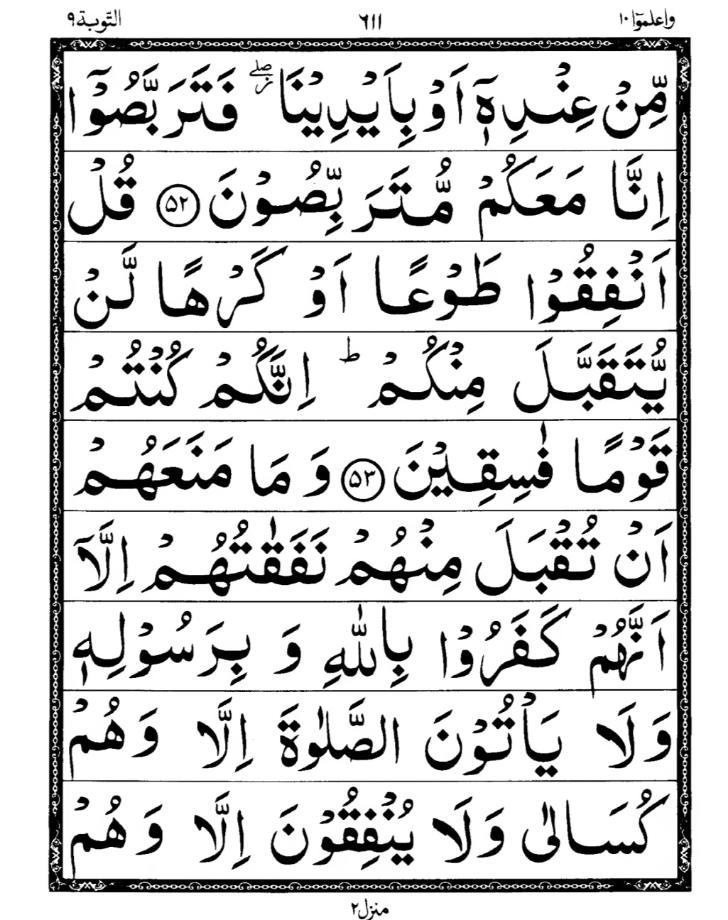 واعلموٓا ١٠ ٦١١ التّوبة ٩
مِّنۡ عِنۡدِهٖۤ اَوۡ بِاَيۡدِيۡنَا ۖ فَتَرَبَّصُوۡۤا
اِنَّا مَعَكُمۡ مُّتَرَبِّصُوۡنَ ﴿۵۲﴾ قُلۡ
اَنۡفِقُوۡا طَوۡعًا اَوۡ كَرۡهًا لَّنۡ
يُّتَقَبَّلَ مِنۡكُمۡ ؕ اِنَّكُمۡ كُنۡتُمۡ
قَوۡمًا فٰسِقِيۡنَ ﴿۵۳﴾ وَ مَا مَنَعَهُمۡ
اَنۡ تُقۡبَلَ مِنۡهُمۡ نَفَقٰتُهُمۡ اِلَّاۤ
اَنَّهُمۡ كَفَرُوۡا بِاللّٰهِ وَ بِرَسُوۡلِهٖ
وَلَا يَاۡتُوۡنَ الصَّلٰوةَ اِلَّا وَهُمۡ
كُسَالٰى وَلَا يُنۡفِقُوۡنَ اِلَّا وَهُمۡ
منزل ٢